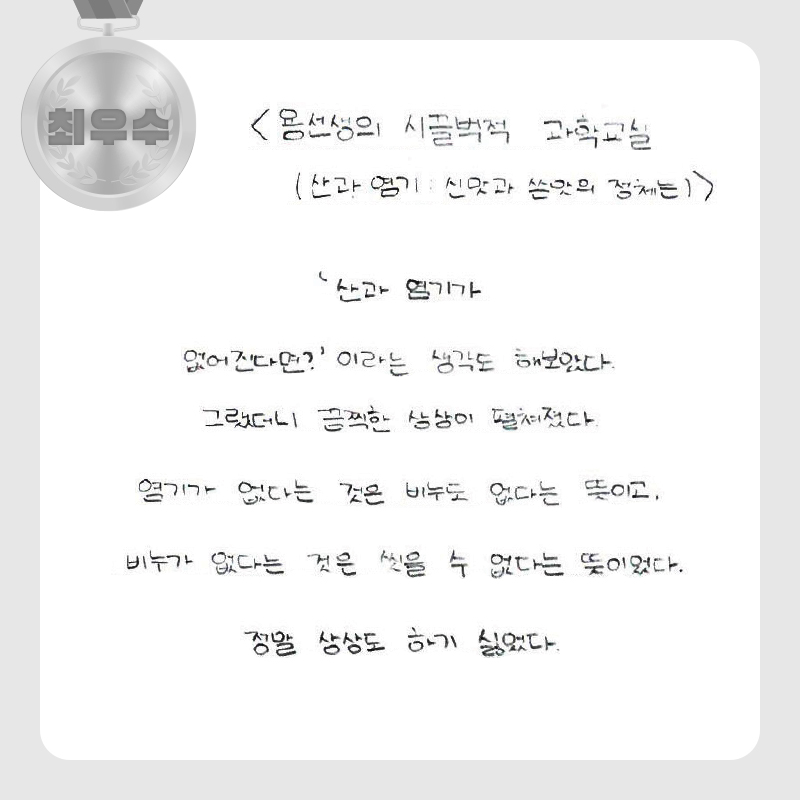 최우수
<용선생의 시끌벅적 과학교실
(산과 염기 : 신맛과 쓴맛의 정체는)>
'산과 염기가
없어진다면?' 이라는 생각도 해보았다.
그랬더니 끔찍한 상상이 펼쳐졌다.
염기가 없다는 것은 비누도 없다는 뜻이고,
비누가 없다는 것은 씻을 수 없다는 뜻이었다.
정말 상상도 하기 싫었다.